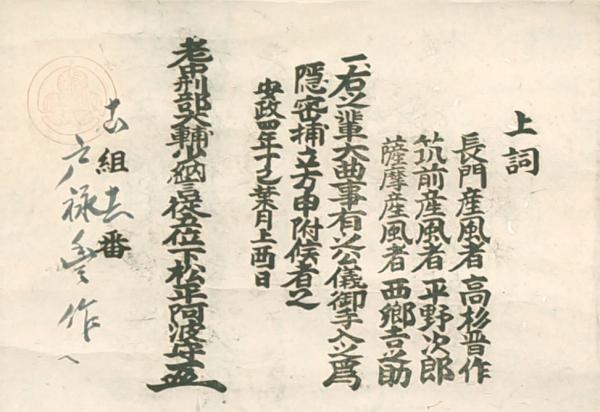 上詞
長門産風者 高杉晋作
筑前産風者 平野次郎
薩摩産風者 西郷吉之助
一、右之輩大曲事有之公儀御手入之爲
隠密捕立方申附候者之
安政四年十之葉月上酉日
老中刑部大輔少納言従五位下松平阿波守
組 番
戸祿 作へ